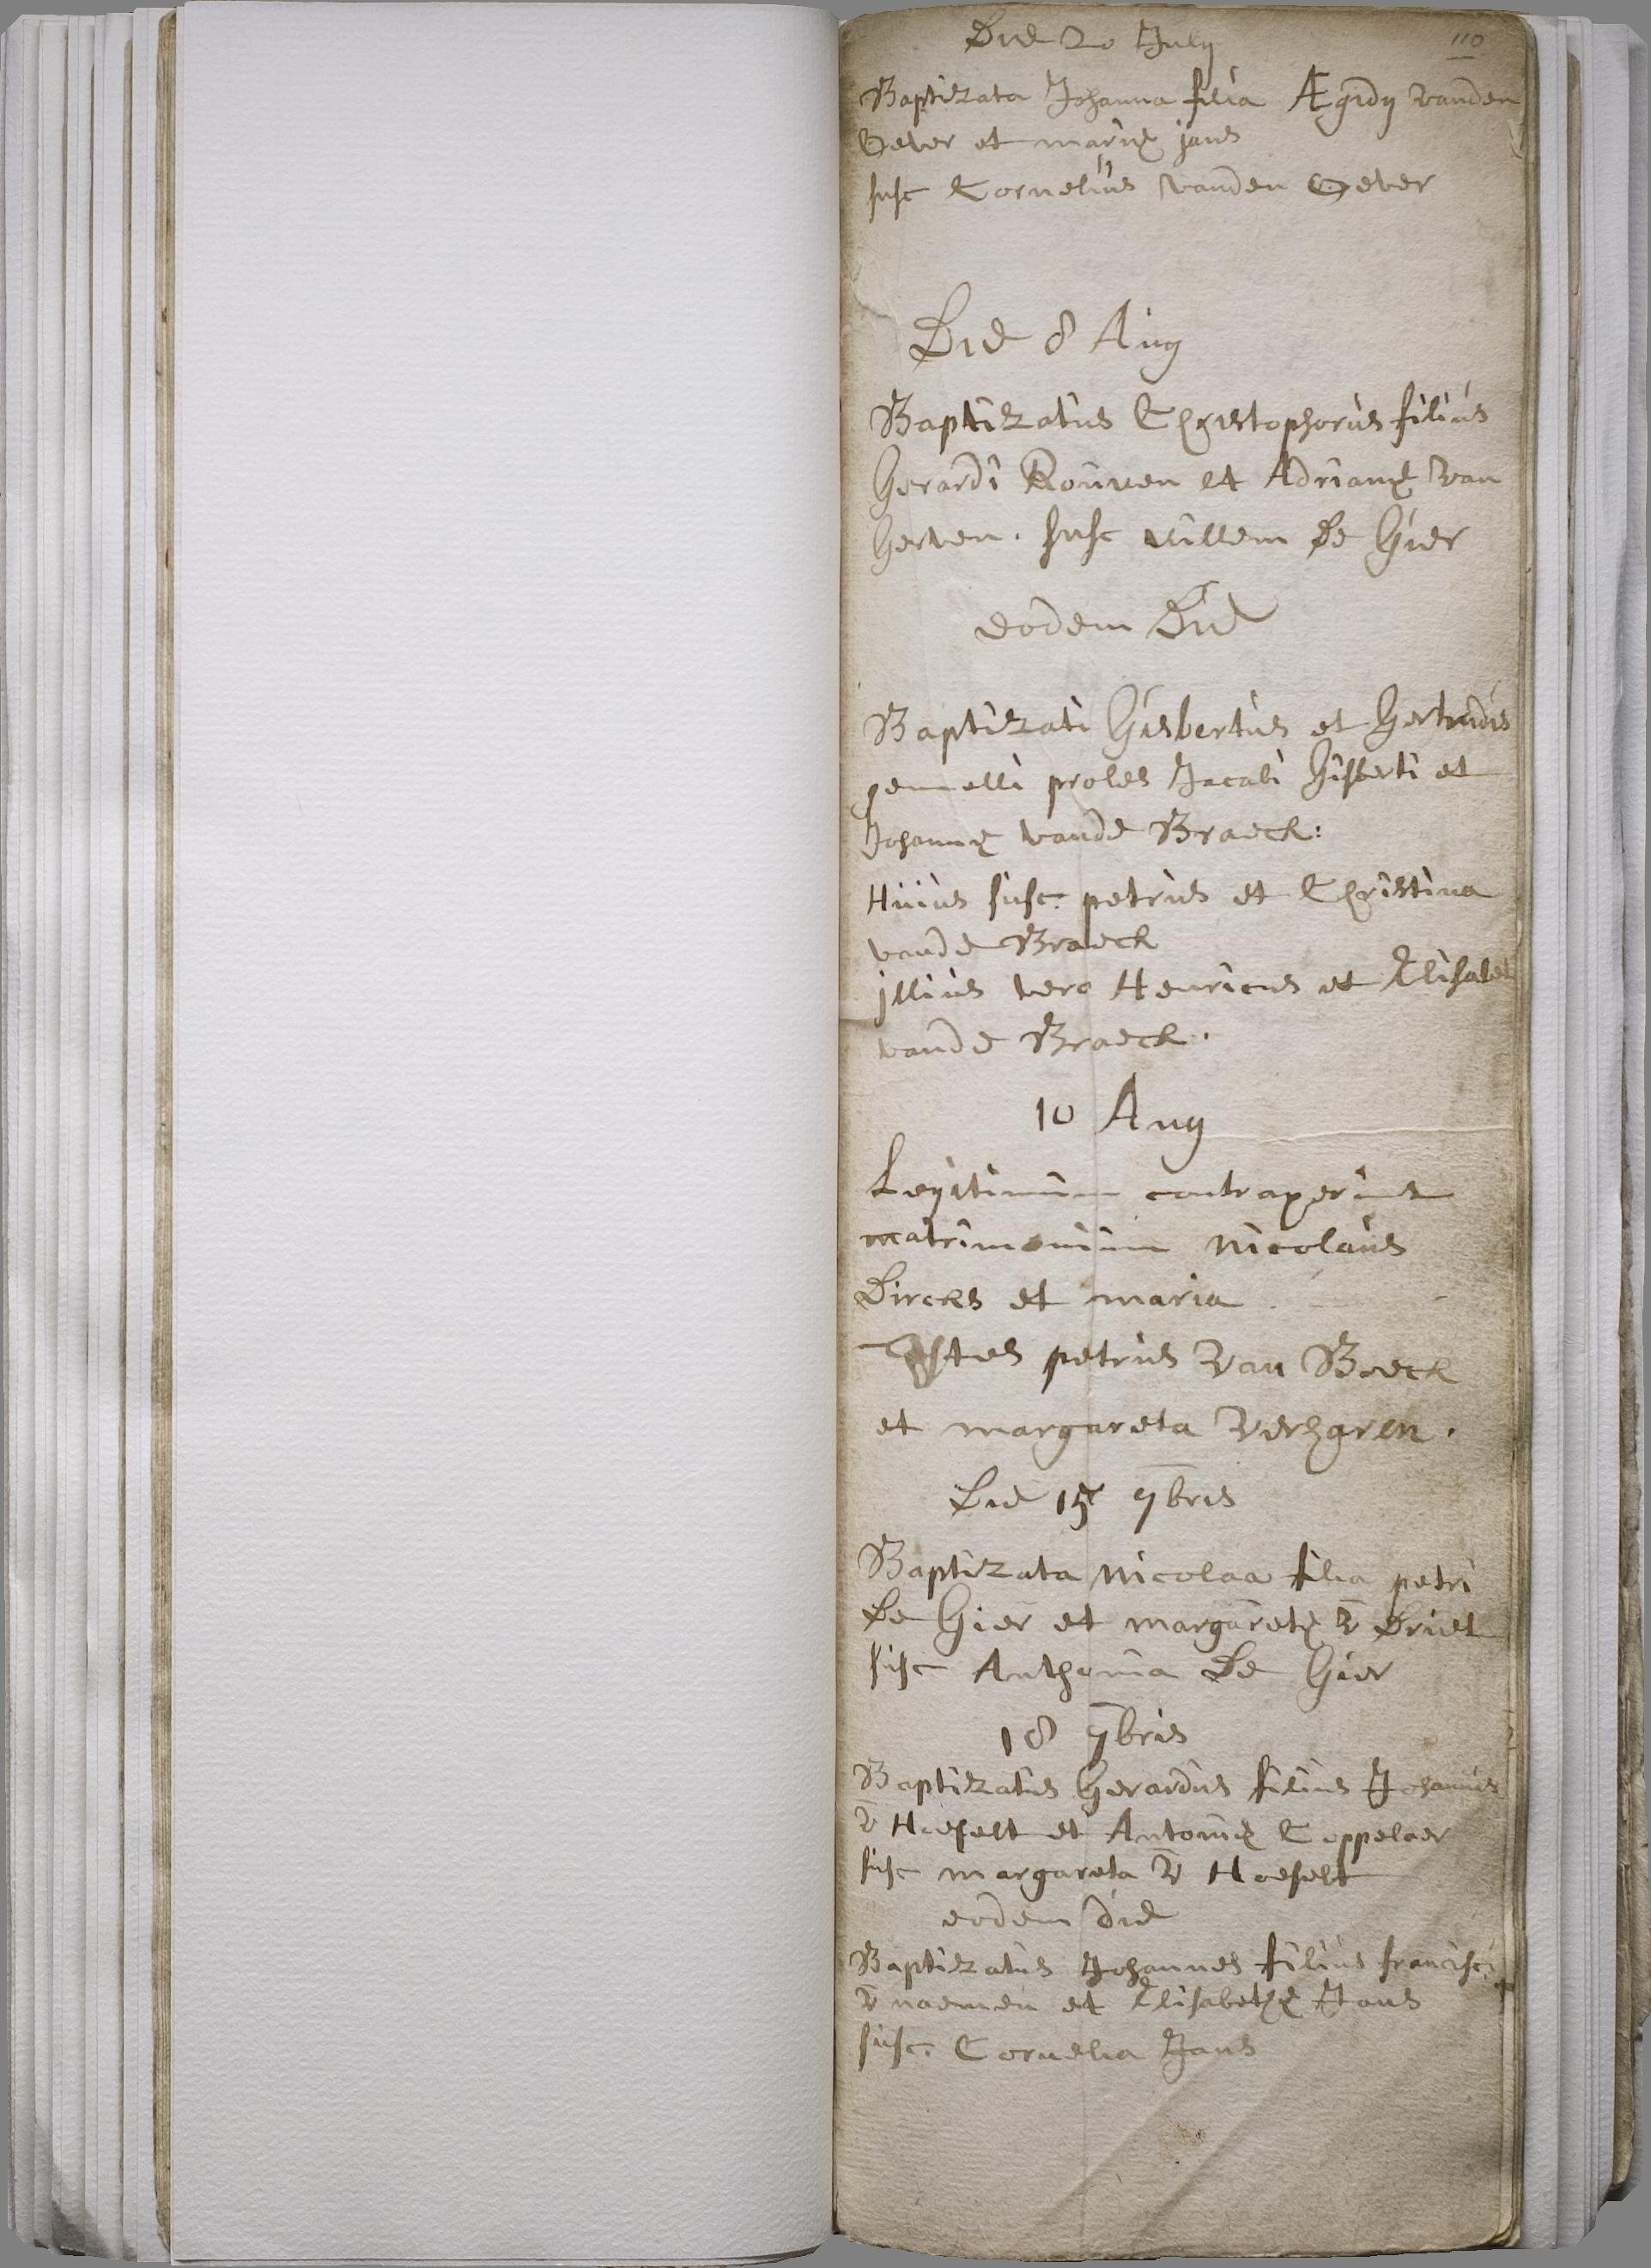 110
Die 20 July
Baptizata Johanna filia Ægidy vanden
Oever et mariæ jans
susc Cornelius vanden Oever
Die 8 Aug
Baptizatus Christophorus filius
Gerardi Rouwen et Adrianæ van
Gerven. susc willem de Gier
eodem Die
Baptizati Gisbertus et Gertrudis
gemelli proles Jacobi Gisberti et
Johannæ vande Braeck:
Huius susc. petrus et Christina
vande Braeck
illius vero Henricus et Elisabet
vande Braeck.
10 Aug
Legitimum contraxerunt
matrimonium Nicolaus
Dircks et maria
Testes petrus van Boeck
et margareta Verharen.
Die 15 7bris
Baptizata Nicolaa filia petri
De Gier et margaretæ v Driel
susc Anthonia De Gier
18 7bris
Baptizatus Gerardus filius Johannis
v Hoeselt et Antoniæ Coppelaer
susc margareta v Hoeselt
eodem die
Baptizatus Johannes filius francisci
v naemen et Elisabethæ Jans
susc. Cornelia Jans